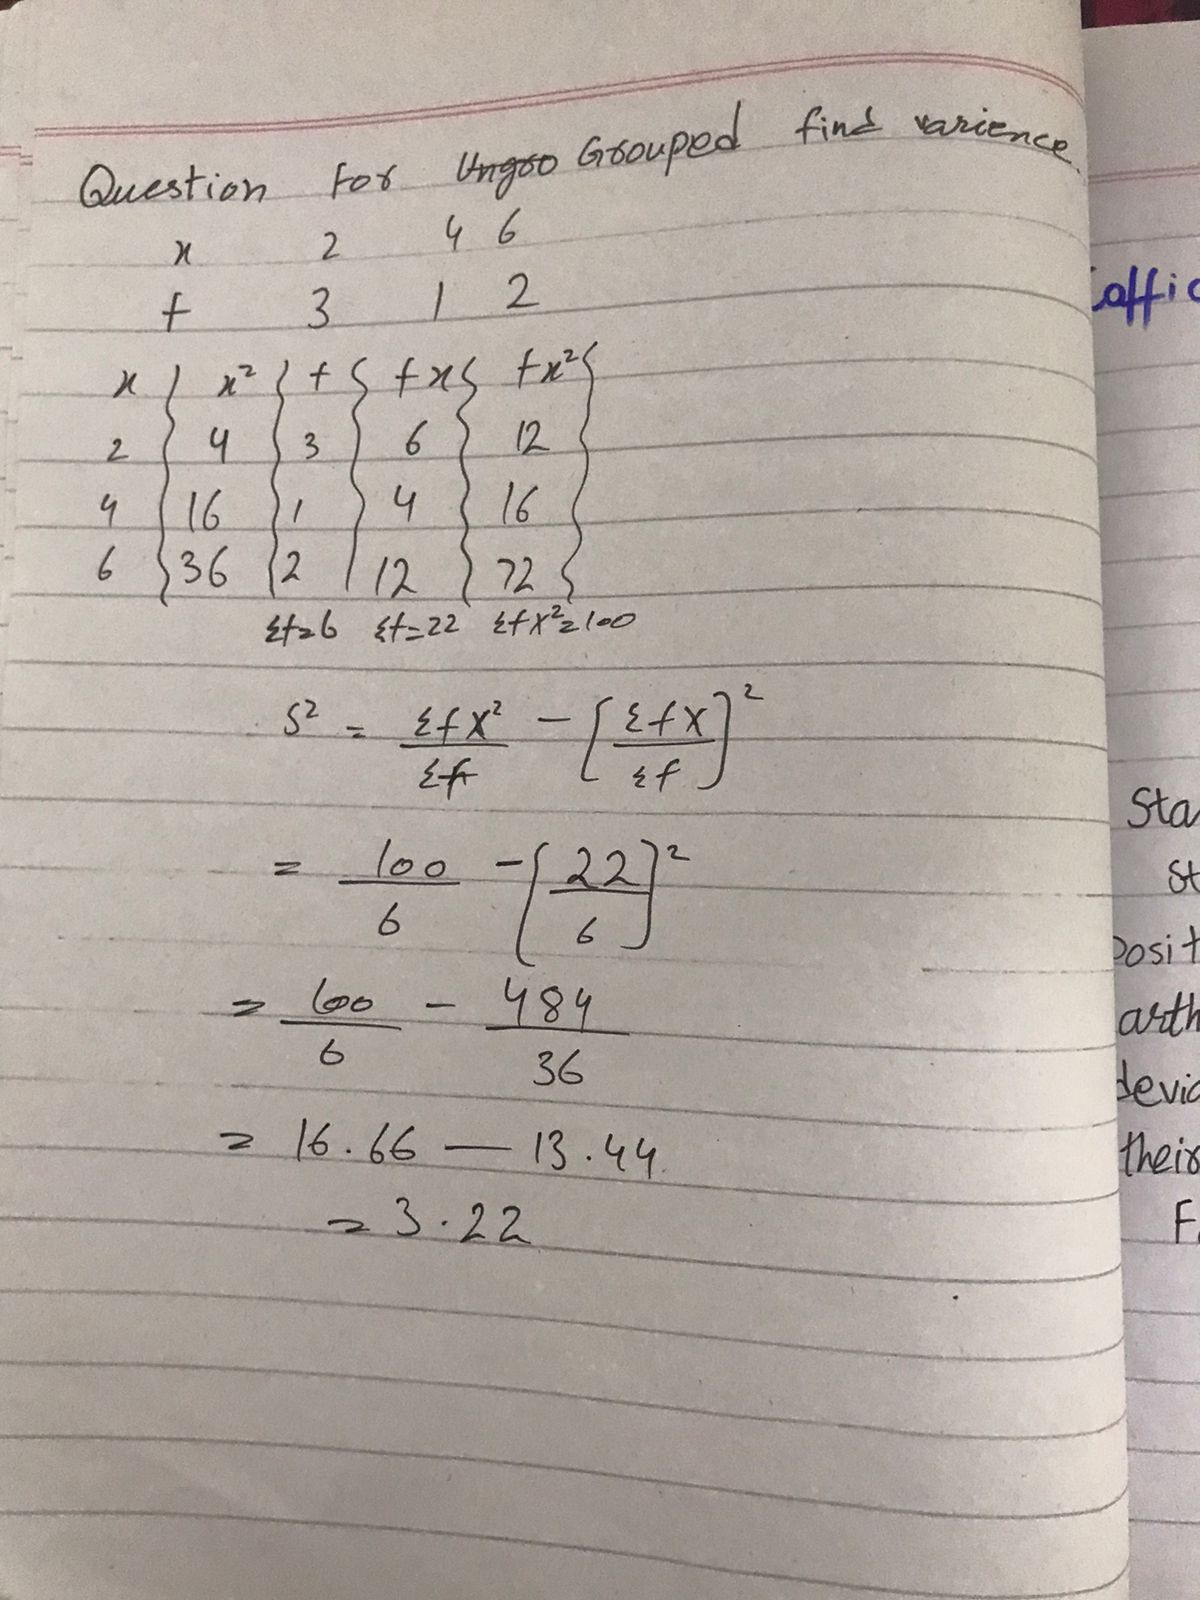 Question For Ungro Grouped find varience
x 2 4 6
f 3 1 2
x x² f fx fx²
2 4 3 6 12
4 16 1 4 16
6 36 2 12 72
Σf=6 Σf=22 Σfx²=100
S² = Σfx²/Σf - [Σfx/Σf]²
= 100/6 - [22/6]²
= 100/6 - 484/36
= 16.66 — 13.44
= 3.22
Sta
st
posit
arth
devia
their
F